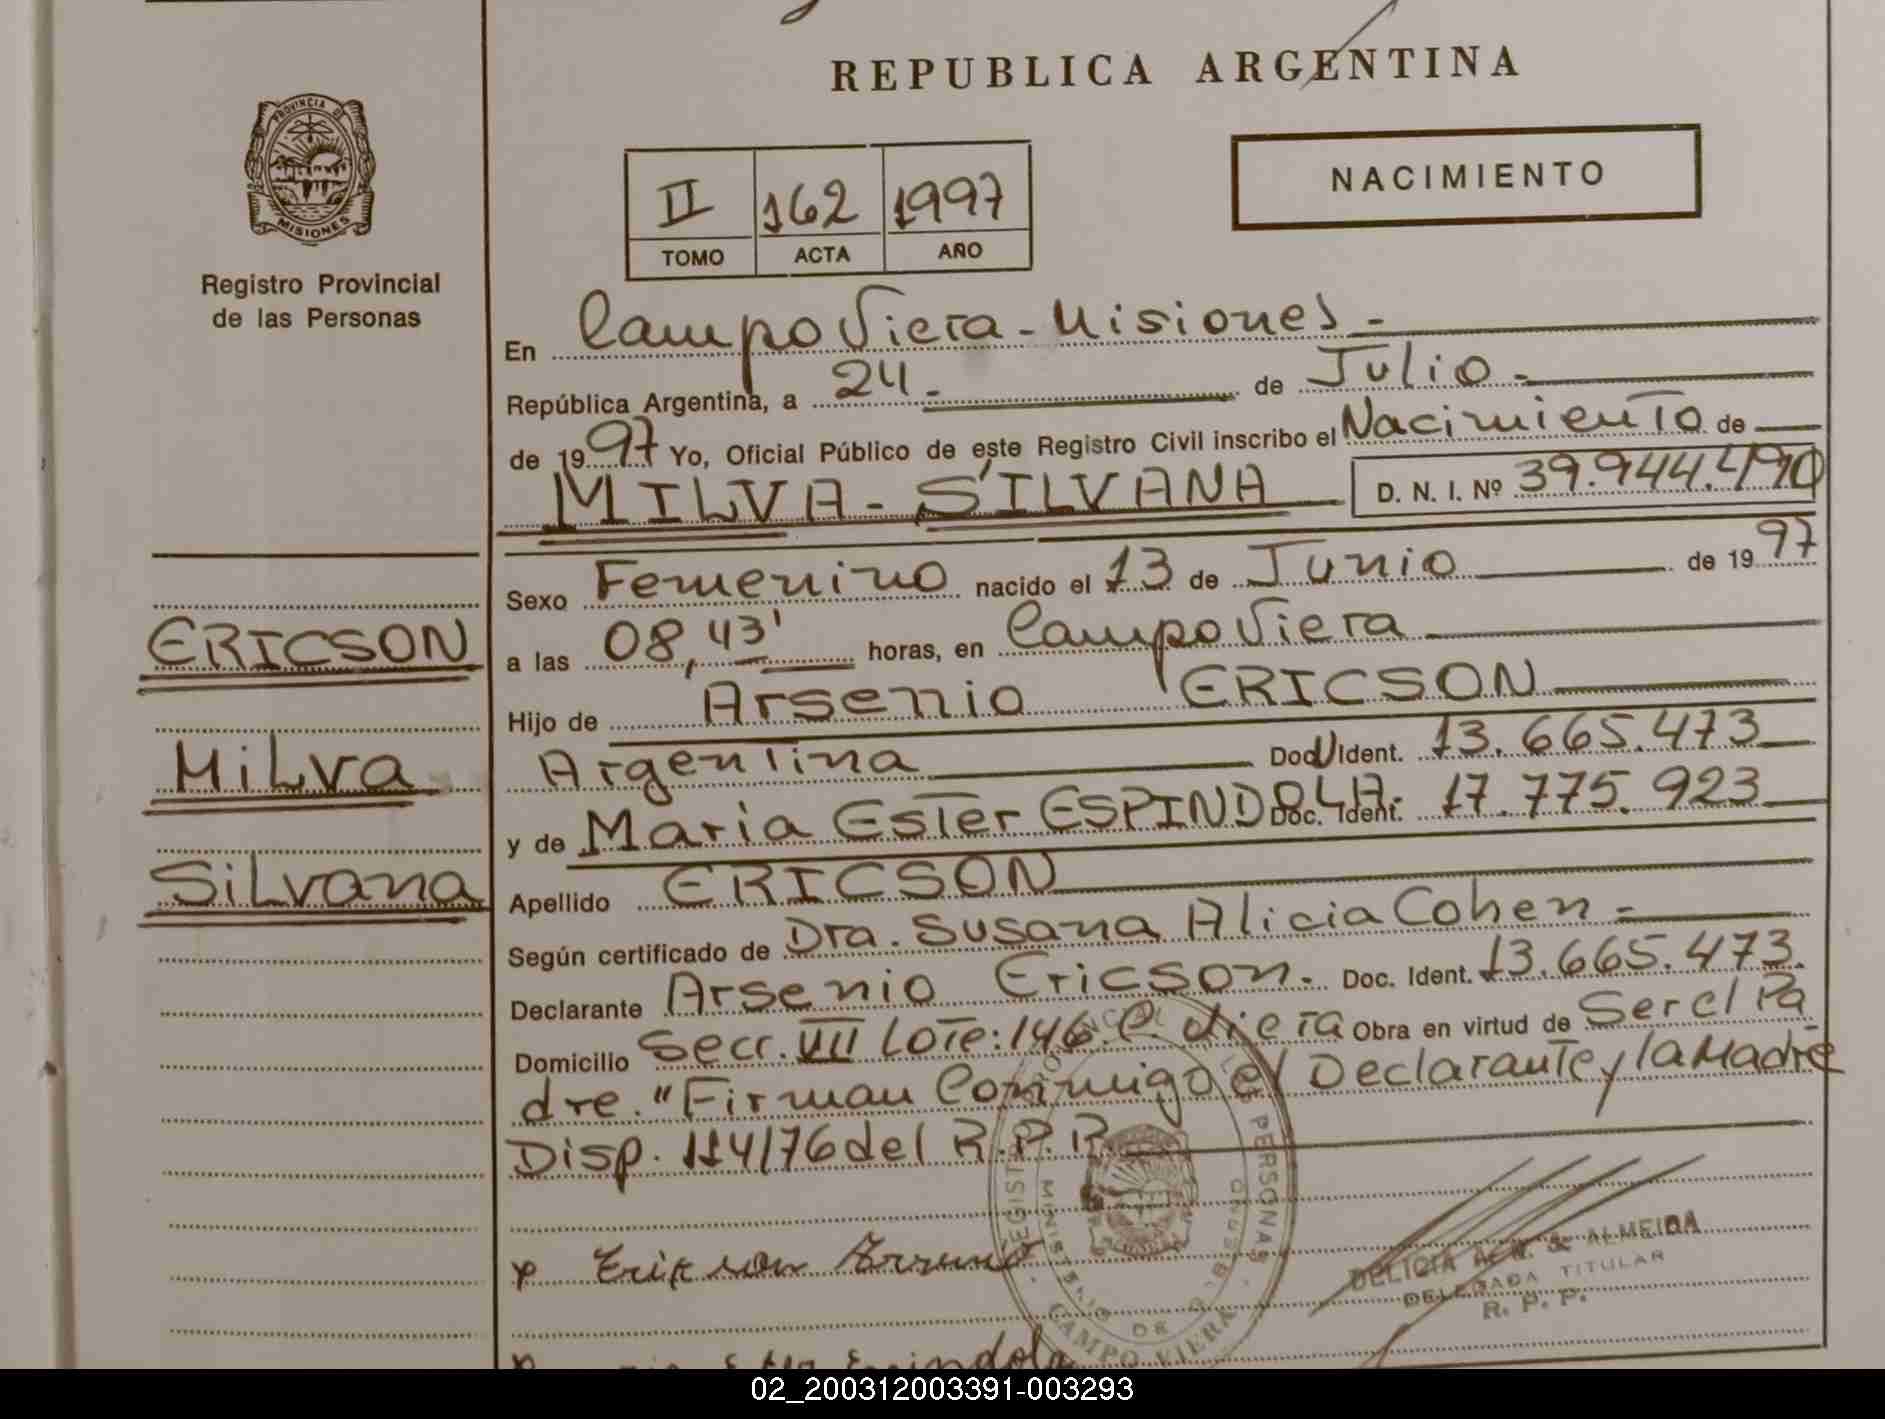 REPUBLICA ARGENTINA
PROVINCIA DE
MISIONES
Registro Provincial
de las Personas
II 162 1997
TOMO ACTA AÑO
NACIMIENTO
En Campo Viera - Misiones -
República Argentina, a 24 - de Julio -
de 1997 Yo, Oficial Público de este Registro Civil inscribo el Nacimiento de
MILVA - SILVANA D. N. I. Nº 39.944.490
Sexo Femenino nacido el 13 de Junio de 1997
a las 08,43' horas, en Campo Viera
Hijo de Arsenio ERICSON
Argentina Doc. Ident. 13.665.473
y de Maria Ester ESPINDOLA - Doc. Ident. 17.775.923
Apellido ERICSON
Según certificado de Dra. Susana Alicia Cohen -
Declarante Arsenio Ericson. Doc. Ident. 13.665.473.
Domicilio Secc. VII Lote: 146. C. Viera Obra en virtud de Ser el Pa
dre. "Firman Conmigo el Declarante y la Madre
Disp. 114/76 del R.P.P.
ERICSON
Milva
Silvana
x Erikson
DELICIA ALMEIDA
DELEGADA TITULAR
R. P. P.
CAMPO VIERA
Espindola
02_200312003391-003293